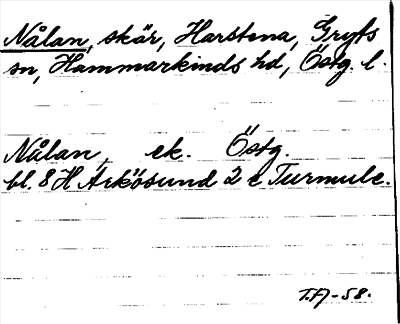 Nålan, skär, Harstena, Gryts
sn, Hammarkinds hd, Östg. l.
Nålan, ek. Östg.
bl. 8 H Arkösund 2 e Turmule.